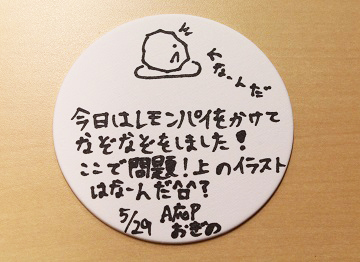 ← なーんだ
今日はレモンパイをかけて
なぞなぞをしました！
ここで問題！上のイラスト
はなーんだ？
5/29
おぎの